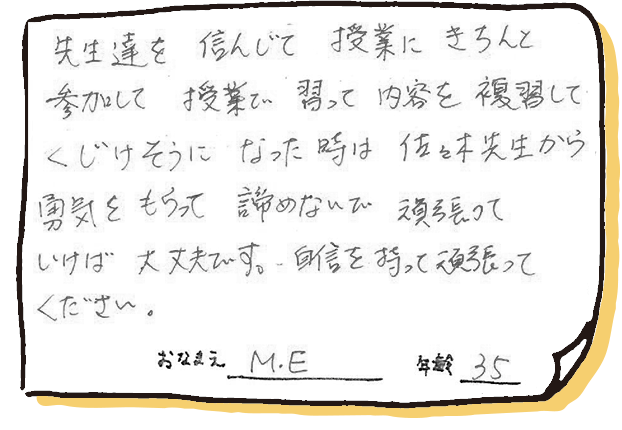 先生達を 信んじて 授業に きちんと
参加して 授業で 習って 内容を 複習して
くじけそうに なった 時は 佐々木先生から
勇気を もらって 諦めないで 頑張って
いけば 大丈夫です。自信を 持って 頑張って
ください。
おなまえ M.E 年齢 35